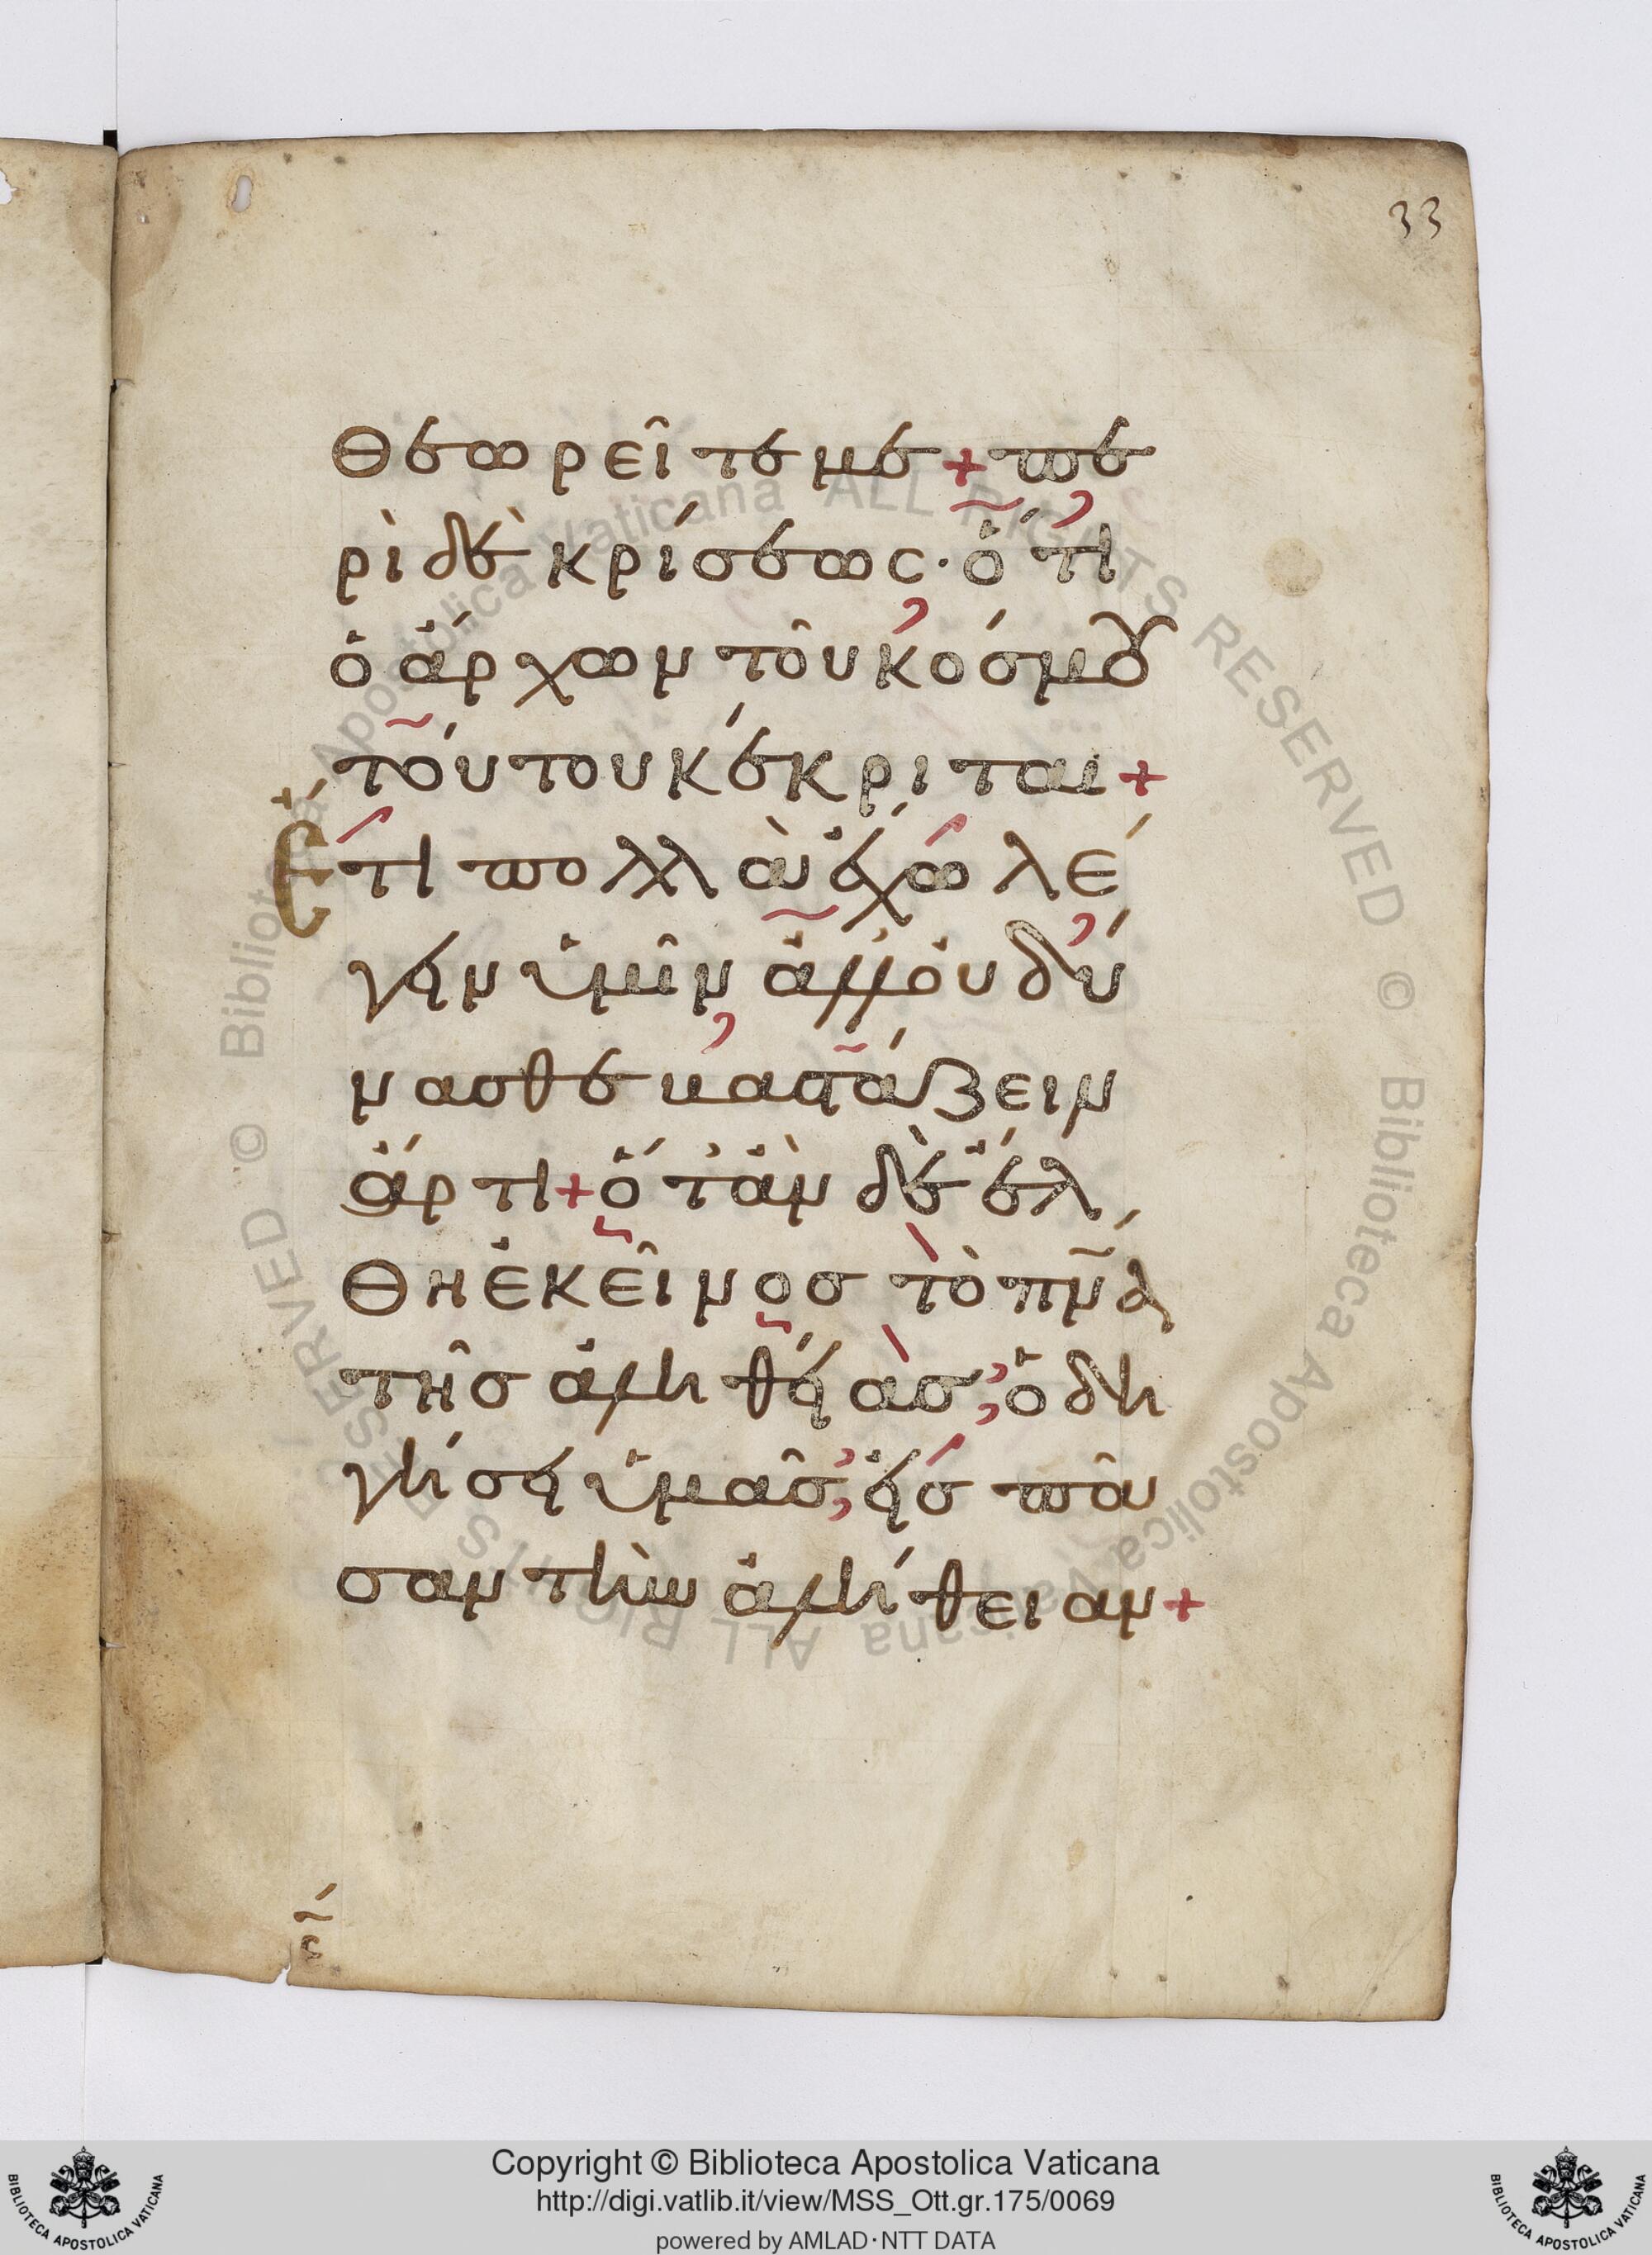 33
θεωρεῖτε με + πε
ρὶ δὲ κρίσεως · ὅτι
ὁ ἄρχων τοῦ κόσμου
τούτου κέκριται +
Ἔτι πολλὰ ἔχω λέ
γειν ὑμῖν ἀλλ' οὐ δύ
νασθε βαστάζειν
ἄρτι + ὅταν δὲ ἔλ
θη ἐκεῖνος τὸ πν̅α
τῆς ἀληθείας ; ὁδη
γήσει ὑμᾶς ; εἰς πᾶ
σαν τὴν ἀλήθειαν +
Copyright © Biblioteca Apostolica Vaticana
http://digi.vatlib.it/view/MSS_Ott.gr.175/0069
powered by AMLAD·NTT DATA
BIBLIOTECA APOSTOLICA VATICANA
BIBLIOTECA APOSTOLICA VATICANA
© Biblioteca Apostolica Vaticana ALL RIGHTS RESERVED © Biblioteca Apostolica Vaticana ALL RIGHTS RESERVED